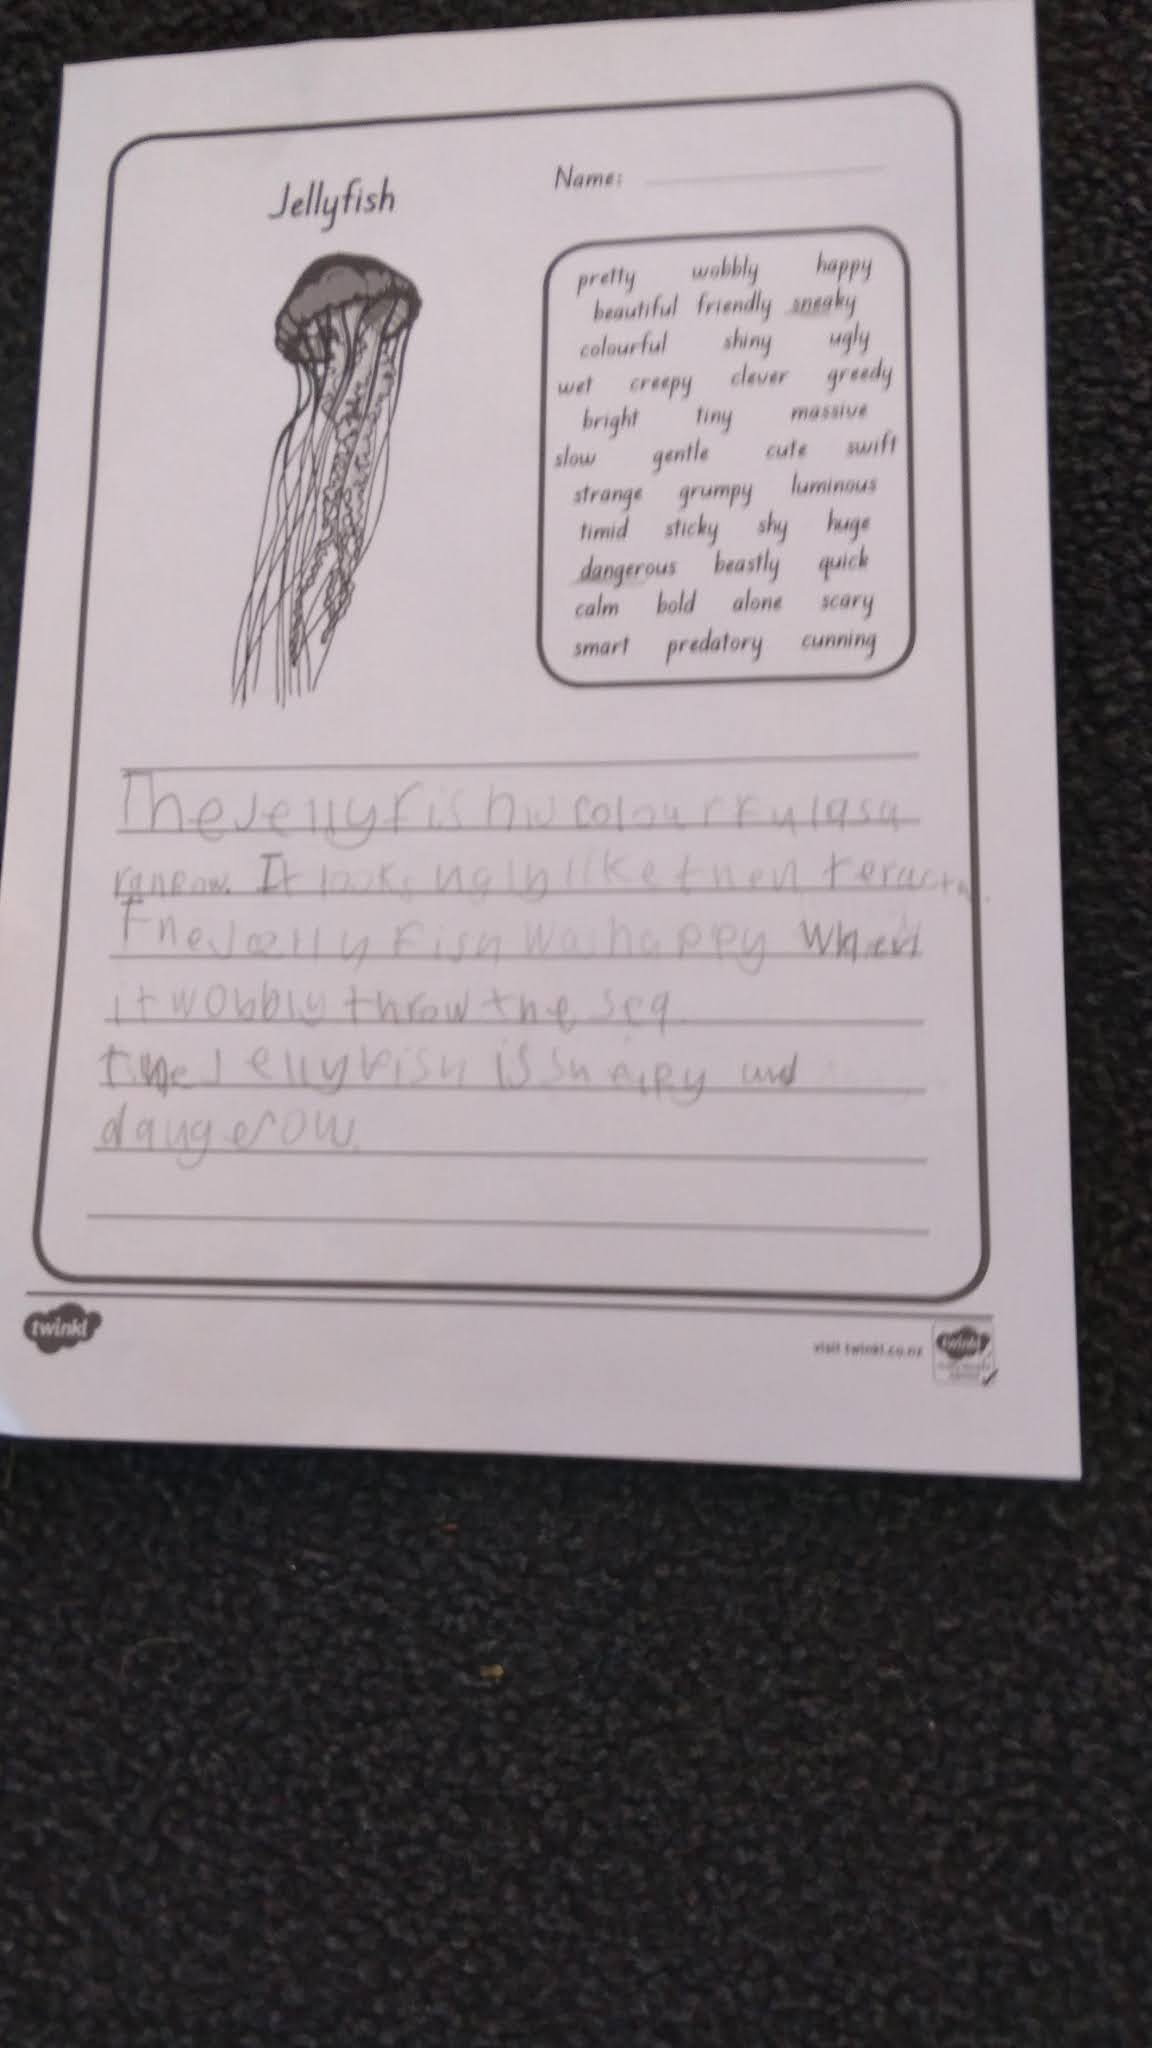 Jellyfish
Name:
pretty wobbly happy
beautiful friendly sneaky
colourful shiny ugly
wet creepy clever greedy
bright tiny massive
slow gentle cute swift
strange grumpy luminous
timid sticky shy huge
dangerous beastly quick
calm bold alone scary
smart predatory cunning
The Jellyfish colourful as a
It looks ugly like
Jellyfish was happy when
it wobbly throw the sea
Jellyfish is and
twinkl
visit twinkl.co.nz
twinkl